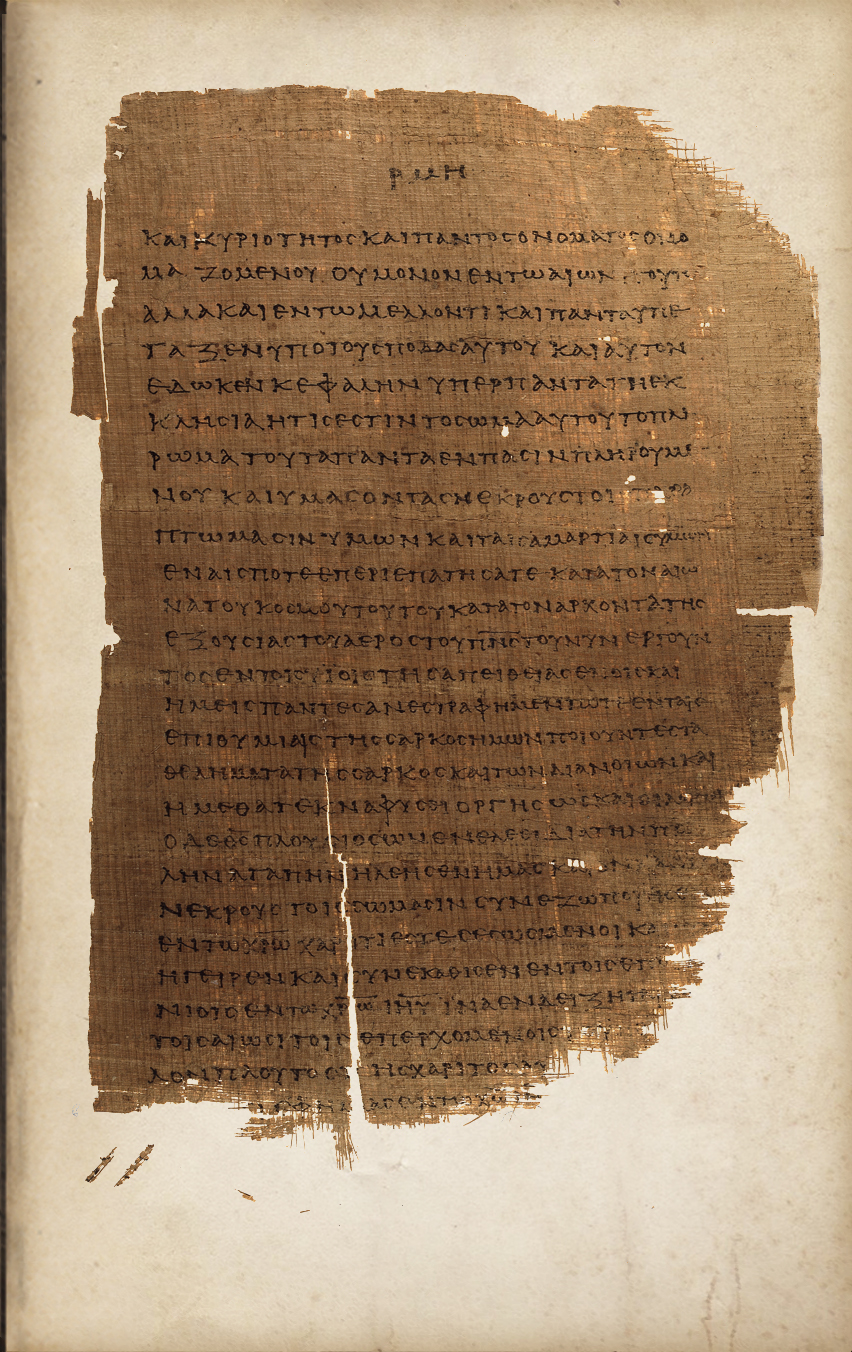 ΡΜΗ
ΚΑΙΚΥΡΙΟΤΗΤΟCΚΑΙΠΑΝΤΟCΟΝΟΜΑΤΟCΟΝΟ
ΜΑΖΟΜΕΝΟΥ ΟΥΜΟΝΟΝΕΝΤΩΑΙΩΝΙ ΤΟΥΤ
ΑΛΛΑΚΑΙΕΝΤΩΜΕΛΛΟΝΤΙ ΚΑΙΠΑΝΤΑΥΠΕ
ΤΑΞΕΝΥΠΟΤΟΥCΠΟΔΑCΑΥΤΟΥ ΚΑΙΑΥΤΟΝ
ΕΔΩΚΕΝΚΕΦΑΛΗΝ ΥΠΕΡΠΑΝΤΑΤΗΕΚ
ΚΛΗCΙΑΗΤΙCΕCΤΙΝΤΟCΩΜΑΑΥΤΟΥΤΟΠΛΗ
ΡΩΜΑΤΟΥΤΑΠΑΝΤΑΕΝΠΑCΙΝΠΛΗΡΟΥΜΕ
ΝΟΥ ΚΑΙΥΜΑCΟΝΤΑCΝΕΚΡΟΥCΤΟΙC ΠΑΡΑ
ΠΤΩΜΑCΙΝΥΜΩΝΚΑΙΤΑΙCΑΜΑΡΤΙΑΙCΥΜΩΝ
ΕΝΑΙCΠΟΤΕΠΕΡΙΕΠΑΤΗCΑΤΕ ΚΑΤΑΤΟΝΑΙΩ
ΝΑΤΟΥΚΟCΜΟΥΤΟΥΤΟΥΚΑΤΑΤΟΝΑΡΧΟΝΤΑΤΗC
ΕΞΟΥCΙΑCΤΟΥΑΕΡΟCΤΟΥΠΝCΤΟΥΝΥΝΕΡΓΟΥΝ
ΤΟCΕΝΤΟΙCΥΙΟΙCΤΗCΑΠΕΙΘΕΙΑCΕΝΟΙCΚΑΙ
ΗΜΕΙCΠΑΝΤΕCΑΝΕCΤΡΑΦΗΜΕΝΠΟΤΕΕΝΤΑΙC
ΕΠΙΘΥΜΙΑΙCΤΗCCΑΡΚΟCΗΜΩΝΠΟΙΟΥΝΤΕCΤΑ
ΘΕΛΗΜΑΤΑΤΗCCΑΡΚΟCΚΑΙΤΩΝΔΙΑΝΟΙΩΝΚΑΙ
ΗΜΕΘΑΤΕΚΝΑΦΥCΕΙΟΡΓΗCΩCΚΑΙΟΙΛΟΙΠΟΙ
ΟΔΕΘCΠΛΟΥCΙΟCΩΝΕΝΕΛΕΕΙΔΙΑΤΗΝΠΟ
ΛΗΝΑΓΑΠΗΝΗΛΕΗCΕΝΗΜΑC ΚΑΙ ΟΝ
ΝΕΚΡΟΥCΤΟΙC CΩΜΑCΙΝCΥΝΕΖΩΠΟΙΗCΕ
ΕΝΤΩΧΡΩ ΧΑΡΙΤΙΕCΤΕCΕCΩCΜΕΝΟΙΚΑ
ΗΓΕΙΡΕΝΚΑΙCΥΝΕΚΑΘΙCΕΝΕΝΤΟΙCΕΠ
ΝΙΟΙCΕΝΤΩΧΡΩ ΙΗΥ ΙΝΑΕΝΔΕΙΞΗΤ
ΤΟΙCΑΙΩCΙΤΟΙC ΕΠΕΡΧΟΜΕΝΟΙC
ΛΟΝΠΛΟΥΤΟC ΗCΧΑΡΙΤΟC